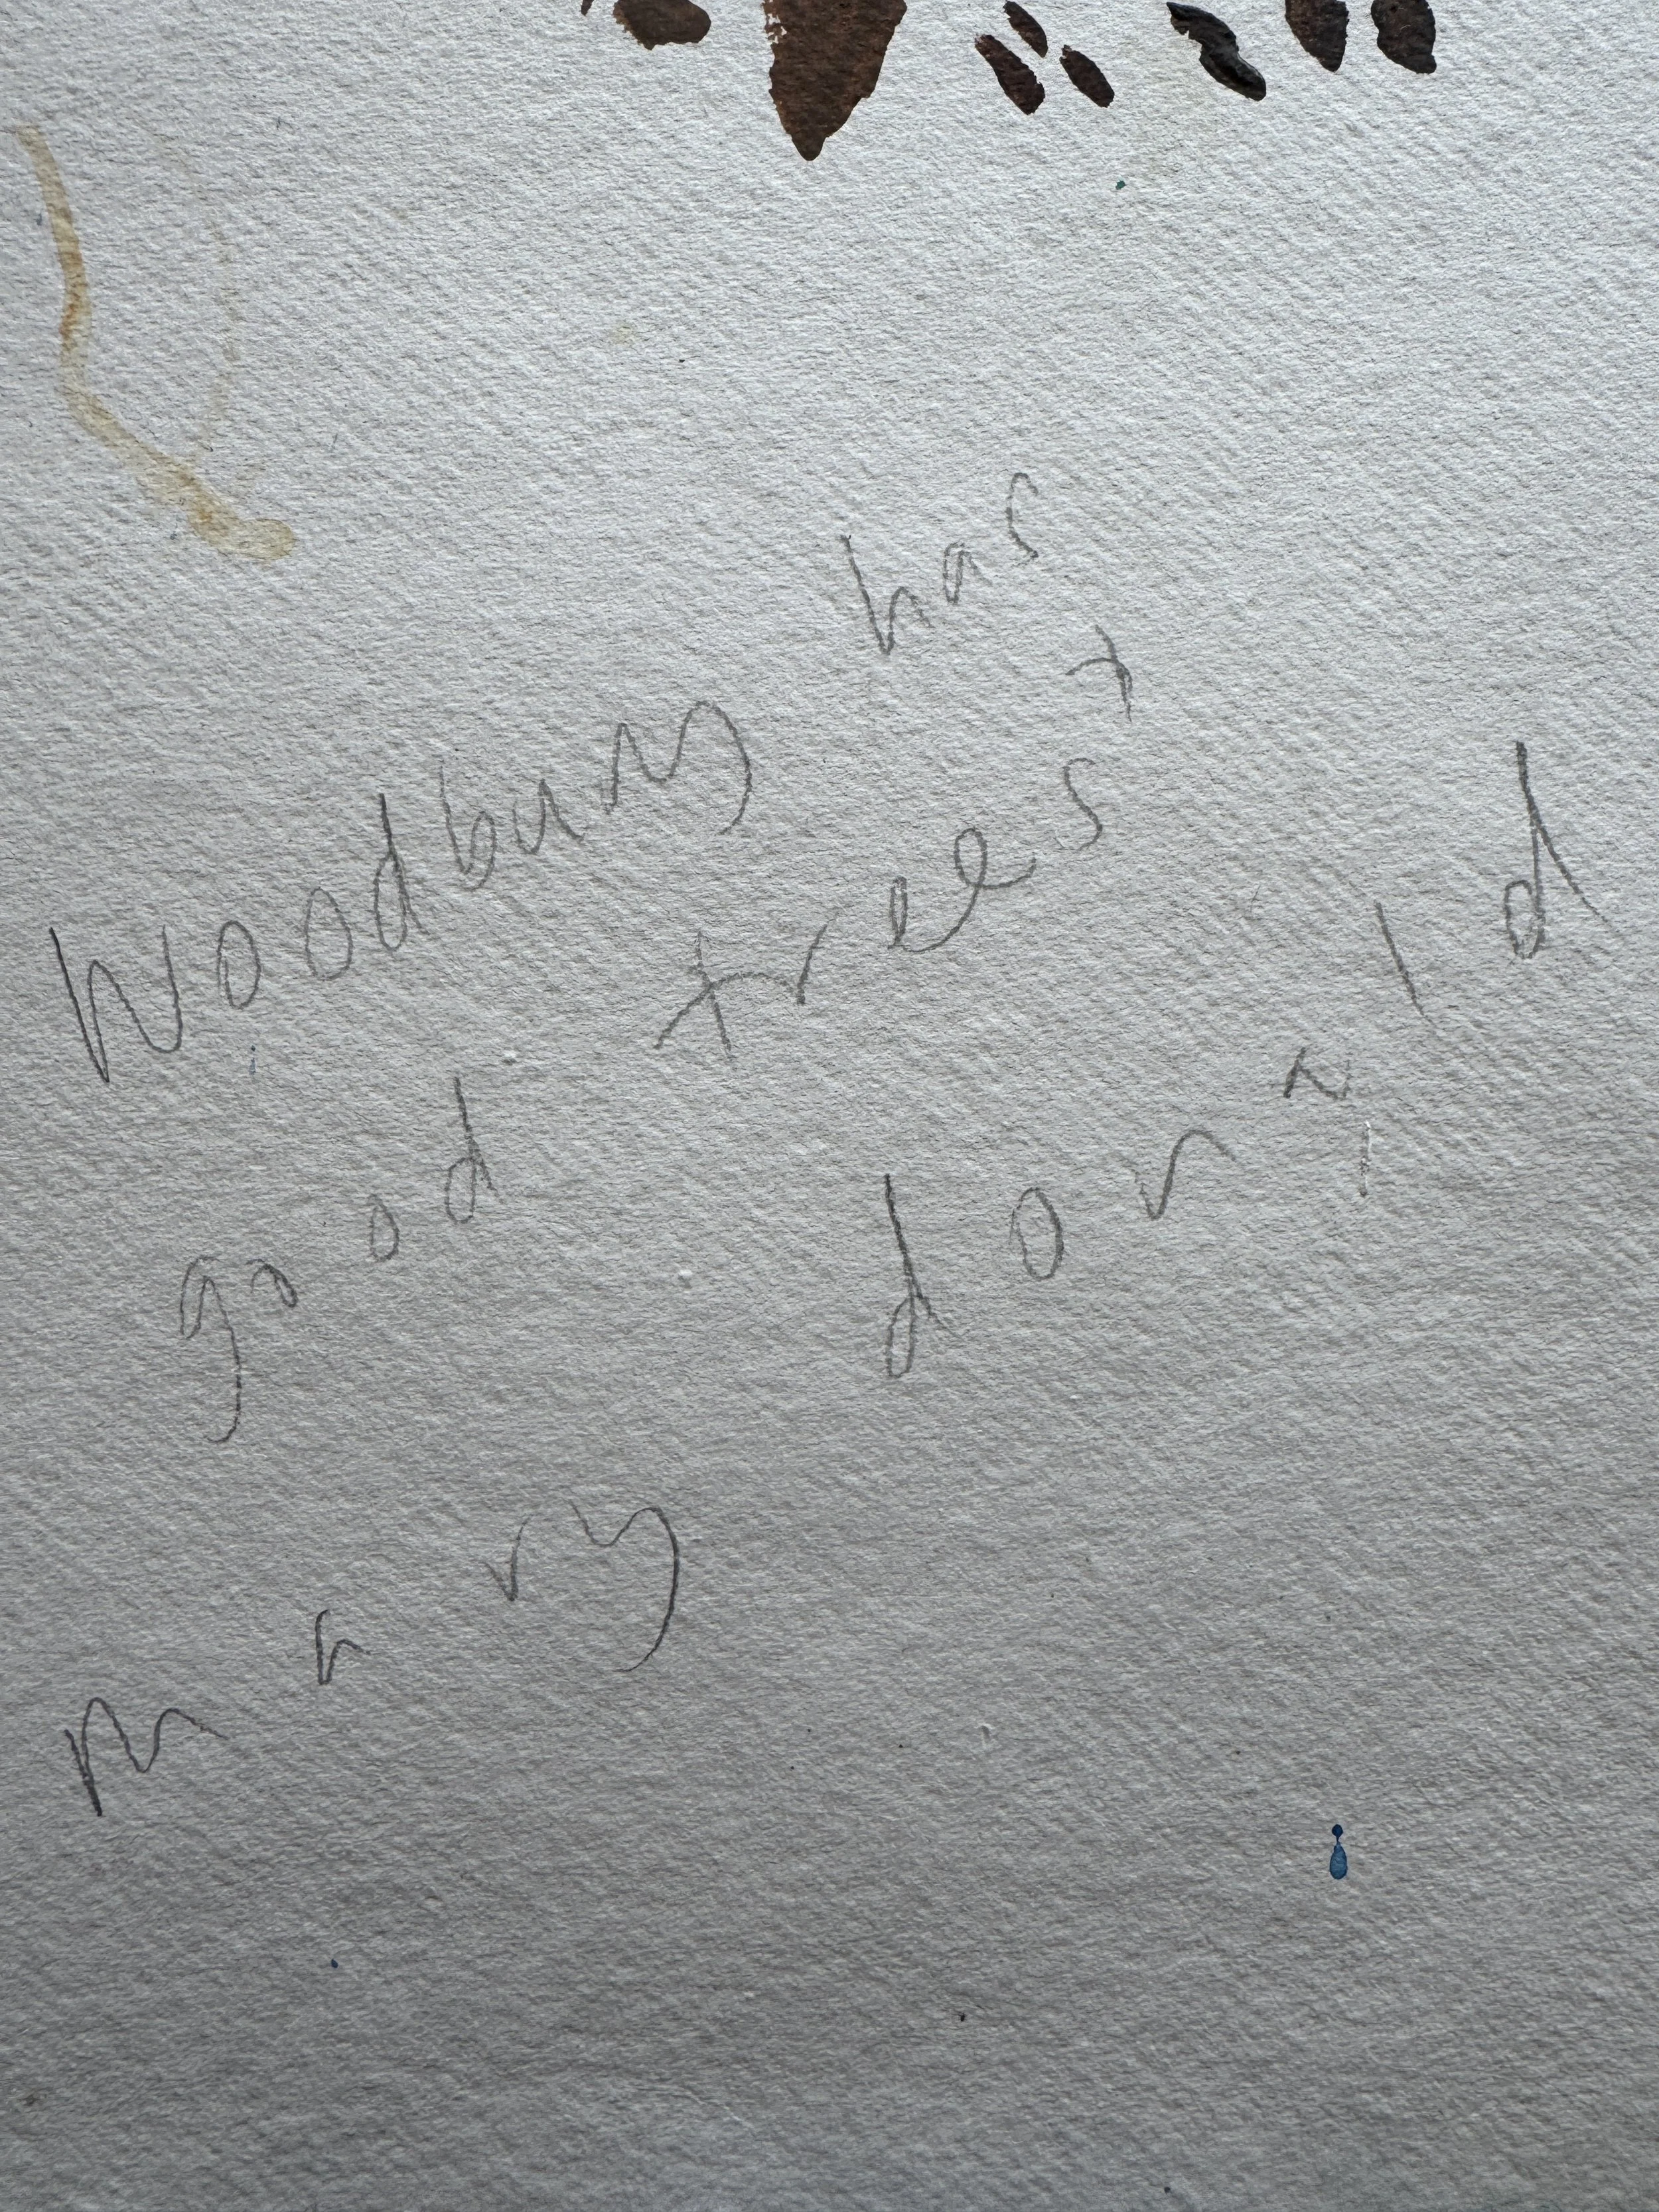 Woodbury has
good trees +
mary donald